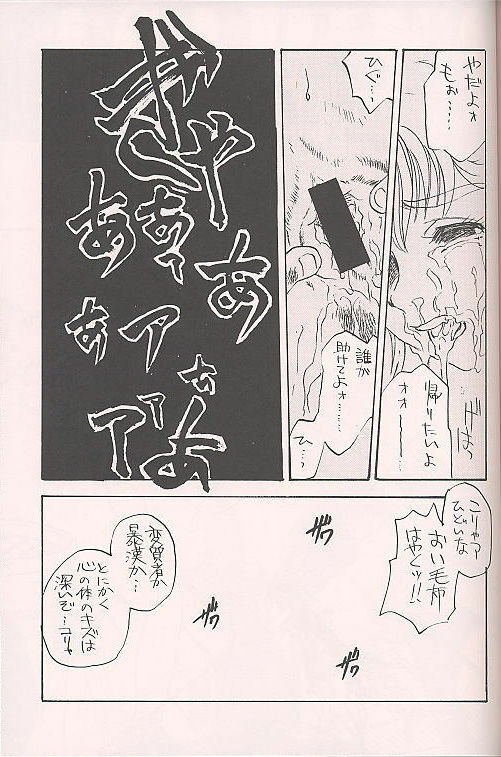 やだよォ
もぉ……
帰りたいよ
ォォ———
げほっ
ひぐ…っ
誰か
助けてよォ……
ひ…っ
ぎゃ
あ
あ
あ
あ
ア
ぁ
ア
ァ
あ
こりゃァ
ひどいな
おい毛布
はやくッ!!
ザワ
ザワ
ザワ
変質者か
暴漢か…
とにかく
心の体のキズは
深いぞ…コリャ